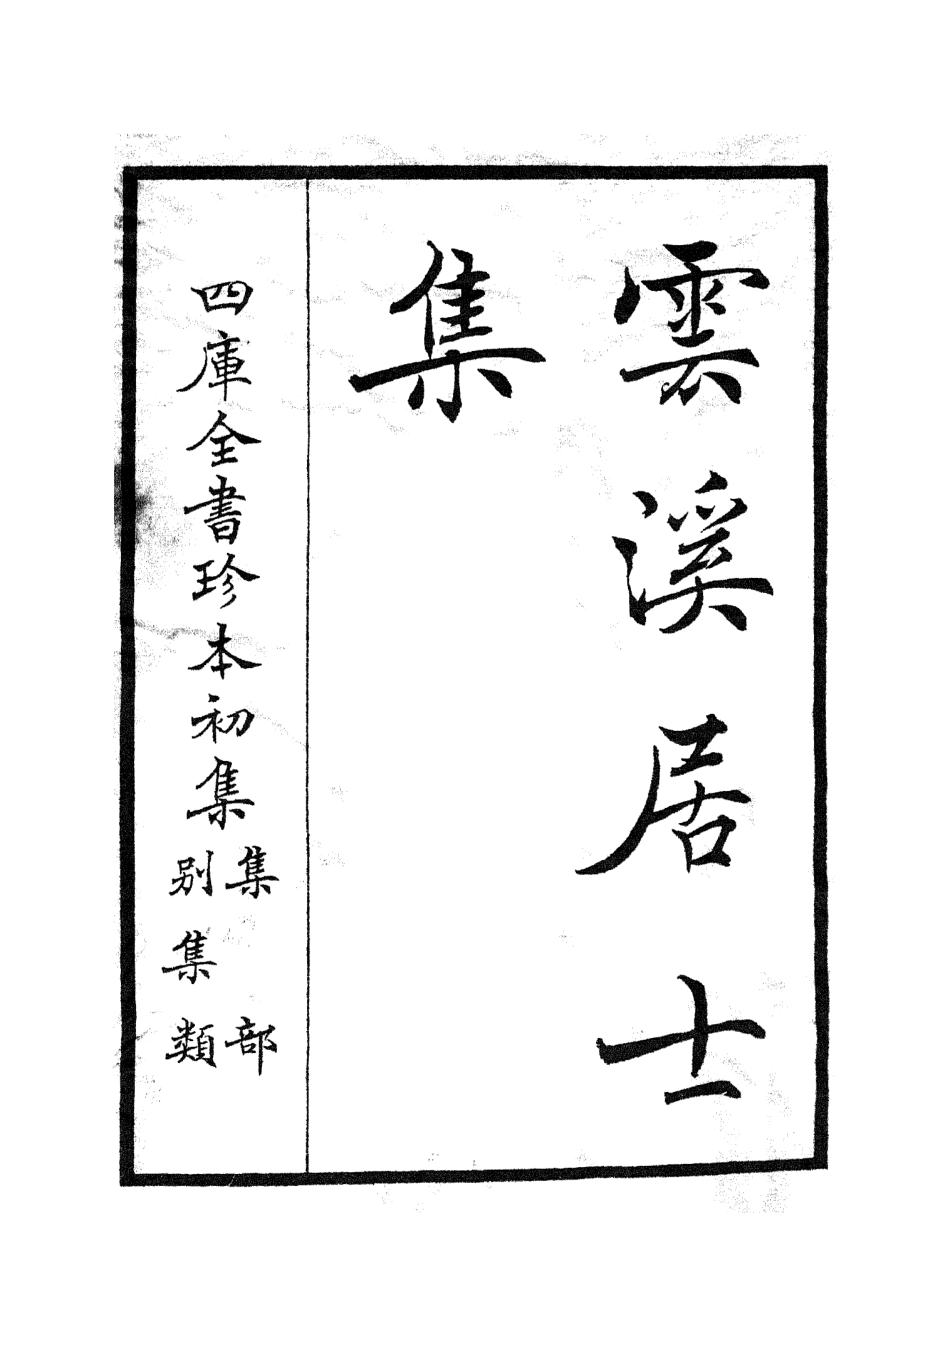 雲溪居士
集
四庫全書珍本初集
集部
別集類